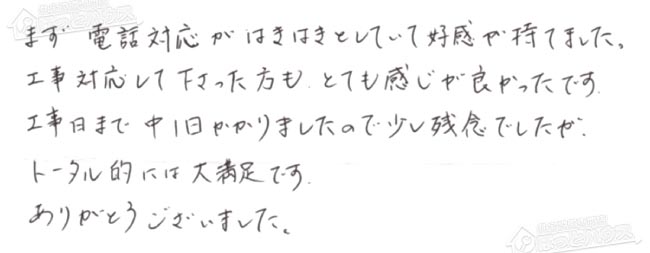 まず 電話対応がはきはきとしていて好感が持てました。
工事対応して下さった方も、とても感じが良かったです.
工事日まで中1日かかりましたので少し残念でしたが、
トータル的には大満足です.
ありがとうございました。